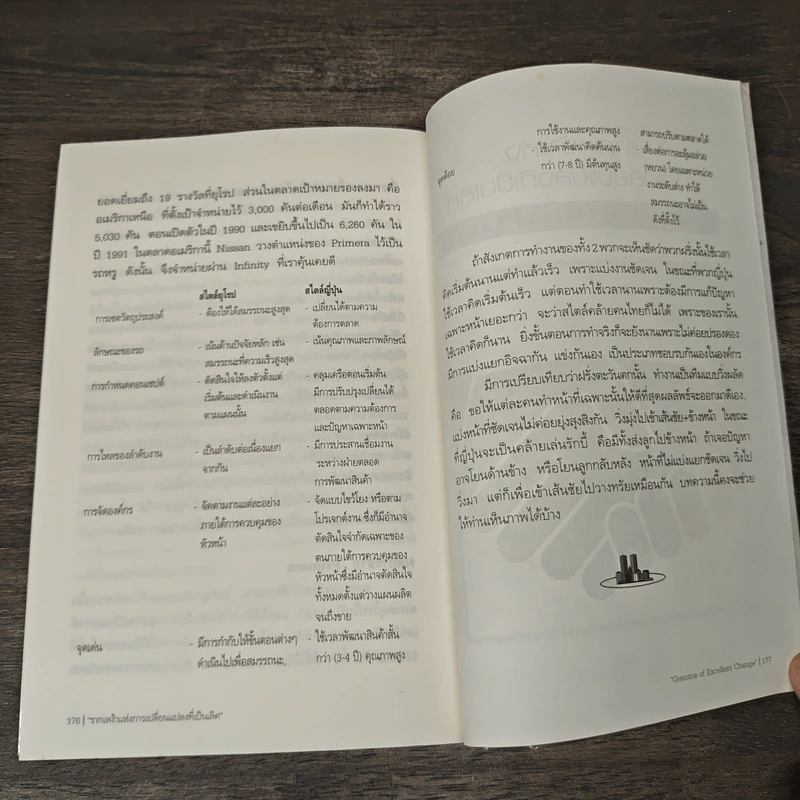 ยอดเยี่ยมถึง 19 รางวัลที่ยุโรป ส่วนในตลาดเป้าหมายรองลงมา คือ
อเมริกาเหนือ ที่ตั้งเป้าจำหน่ายไว้ 3,000 คันต่อเดือน มันก็ทำได้ราว
5,030 คัน ตอนเปิดตัวในปี 1990 และเขยิบขึ้นไปเป็น 6,260 คัน ใน
ปี 1991 ในตลาดอเมริกานี้ Nissan วางตำแหน่งของ Primera ไว้เป็น
รถหรู ดังนั้น จึงจำหน่ายผ่าน Infinity ที่เราคุ้นเคยดี
สไตล์ยุโรป สไตล์ญี่ปุ่น
การเซตวัตถุประสงค์ - ต้องให้ได้สมรรถนะสูงสุด - เปลี่ยนได้ตามความ
ต้องการตลาด
ลักษณะของรถ - เน้นด้านปัจจัยหลัก เช่น - เน้นคุณภาพและภาพลักษณ์
สมรรถนะที่ความเร็วสูงสุด
การกำหนดคอนเซปต์ - ตัดสินใจให้ลงตัวตั้งแต่ - คลุมเครือตอนเริ่มต้น
เริ่มต้นและดำเนินงาน มีการปรับปรุงเปลี่ยนได้
ตามแผนนั้น ตลอดตามความต้องการ
และปัญหาเฉพาะหน้า
การไหลของลำดับงาน - เป็นลำดับต่อเนื่องแยก - มีการประสานเชื่อมงาน
จากกัน ระหว่างฝ่ายตลอด
การพัฒนาสินค้า
การจัดองค์กร - จัดตามงานแต่ละอย่าง - จัดแบบไขว้โยง หรือตาม
ภายใต้การควบคุมของ โปรเจกต์งาน ซึ่งก็มีอำนาจ
หัวหน้า ตัดสินใจจำกัดเฉพาะของ
ตนภายใต้การควบคุมของ
หัวหน้าซึ่งมีอำนาจตัดสินใจ
ทั้งหมดตั้งแต่วางแผนผลิต
จนถึงขาย
จุดเด่น - มีการกำกับให้ขั้นตอนต่างๆ - ใช้เวลาพัฒนาสินค้าสั้น
ดำเนินไปเพื่อสมรรถนะ, กว่า (3-4 ปี) คุณภาพสูง
176 | "รากเหง้าแห่งการเปลี่ยนแปลงที่เป็นเลิศ"
การใช้งานและคุณภาพสูง สามารถปรับตามตลาดได้
จุดด้อย - ใช้เวลาพัฒนาคิดค้นนาน - เสี่ยงต่อการอะลุ้มอล่วย
กว่า (7-8 ปี) มีต้นทุนสูง (หยวน) โดยเฉพาะหน่วย
งานระดับล่าง ทำให้
สมรรถนะอาจไม่เป็น
ดังที่ตั้งไว้
ถ้าสังเกตการทำงานของทั้ง 2 พวกจะเห็นชัดว่าพวกฝรั่งนั้นใช้เวลา
คิดเริ่มต้นนานแต่ทำแล้วเร็ว เพราะแบ่งงานชัดเจน ในขณะที่พวกญี่ปุ่น
ใช้เวลาคิดเริ่มต้นเร็ว แต่ตอนทำใช้เวลานานเพราะต้องมีการแก้ปัญหา
เฉพาะหน้าเยอะกว่า จะว่าสไตล์คล้ายคนไทยก็ไม่ได้ เพราะของเรานั้น
ใช้เวลาคิดก็นาน ยิ่งขั้นตอนการทำจริงก็จะยิ่งนานเพราะไม่ค่อยปรองดอง
มีการแบ่งแยกอิจฉากัน แข่งกันเอง เป็นประเภทชอบรบกันเองในองค์กร
มีการเปรียบเทียบว่าฝรั่งตะวันตกนั้น ทำงานเป็นทีมแบบวิ่งผลัด
คือ ขอให้แต่ละคนทำหน้าที่เฉพาะนั้นให้ดีที่สุดผลลัพธ์จะออกมาดีเอง,
แบ่งหน้าที่ชัดเจนไม่ค่อยยุ่งสุงสิงกัน วิ่งมุ่งไปเข้าเส้นชัย+ข้างหน้า ในขณะ
ที่ญี่ปุ่นจะเป็นคล้ายเล่นรักบี้ คือมีทั้งส่งลูกไปข้างหน้า ถ้าเจอปัญหา
อาจโยนด้านข้าง หรือโยนลูกกลับหลัง หน้าที่ไม่แบ่งแยกชัดเจน วิ่งไป
วิ่งมา แต่ก็เพื่อเข้าเส้นชัยไปวางทรัยเหมือนกัน บทความนี้คงจะช่วย
ให้ท่านเห็นภาพได้บ้าง
"Genome of Excellent Change" | 177